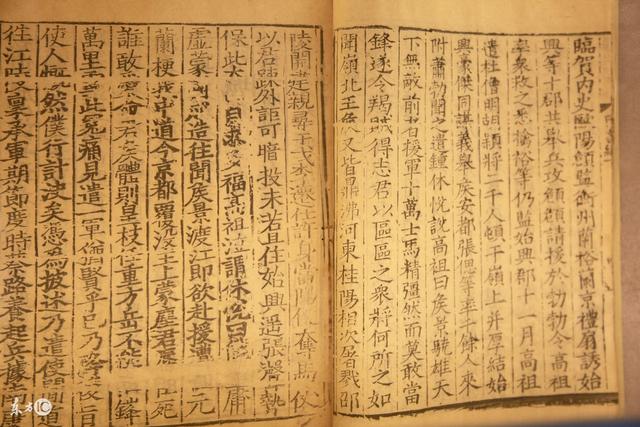 臨賀內史歐陽頠監衡州蘭裕蘭京禮扇誘始
興等十郡共舉兵攻頠頠請援於勃勃令高祖
率衆救之悉擒裕等仍監始興郡十一月高祖
遣杜僧明胡潁將二千人頓于嶺上并厚結始
興豪傑同謀義舉侯安都張偲等率千餘人來
附蕭勃聞之遣鍾休悅說高祖曰侯景驍雄天
下無敵前者援軍十萬士馬精彊然而莫敢當
鋒遂令羯賊得志君以區區之衆將何所之如
聞嶺北王侯又皆鼎沸河東桂陽相次屠戮邵
陵開建親尋干戈李遷仕許身當陽便奪馬仗
以君疎外詎可暗投未若且住始興遙張聲勢
保此太自求多福高祖泣謂休悅曰庸
虛蒙國成造往聞侯景渡江即欲赴援遭元
蘭梗我中道今京都覆沒主上蒙塵君死
誰敢愛命君侯體則皇枝任重方岳不能鋒
萬里雪此冤痛見遣一軍猶賢乎已乃旨
使人慨然僕行計決矣憑為披述乃遣使間道
往江陵稟承軍期節度時蔡路養起兵據南
东方IC